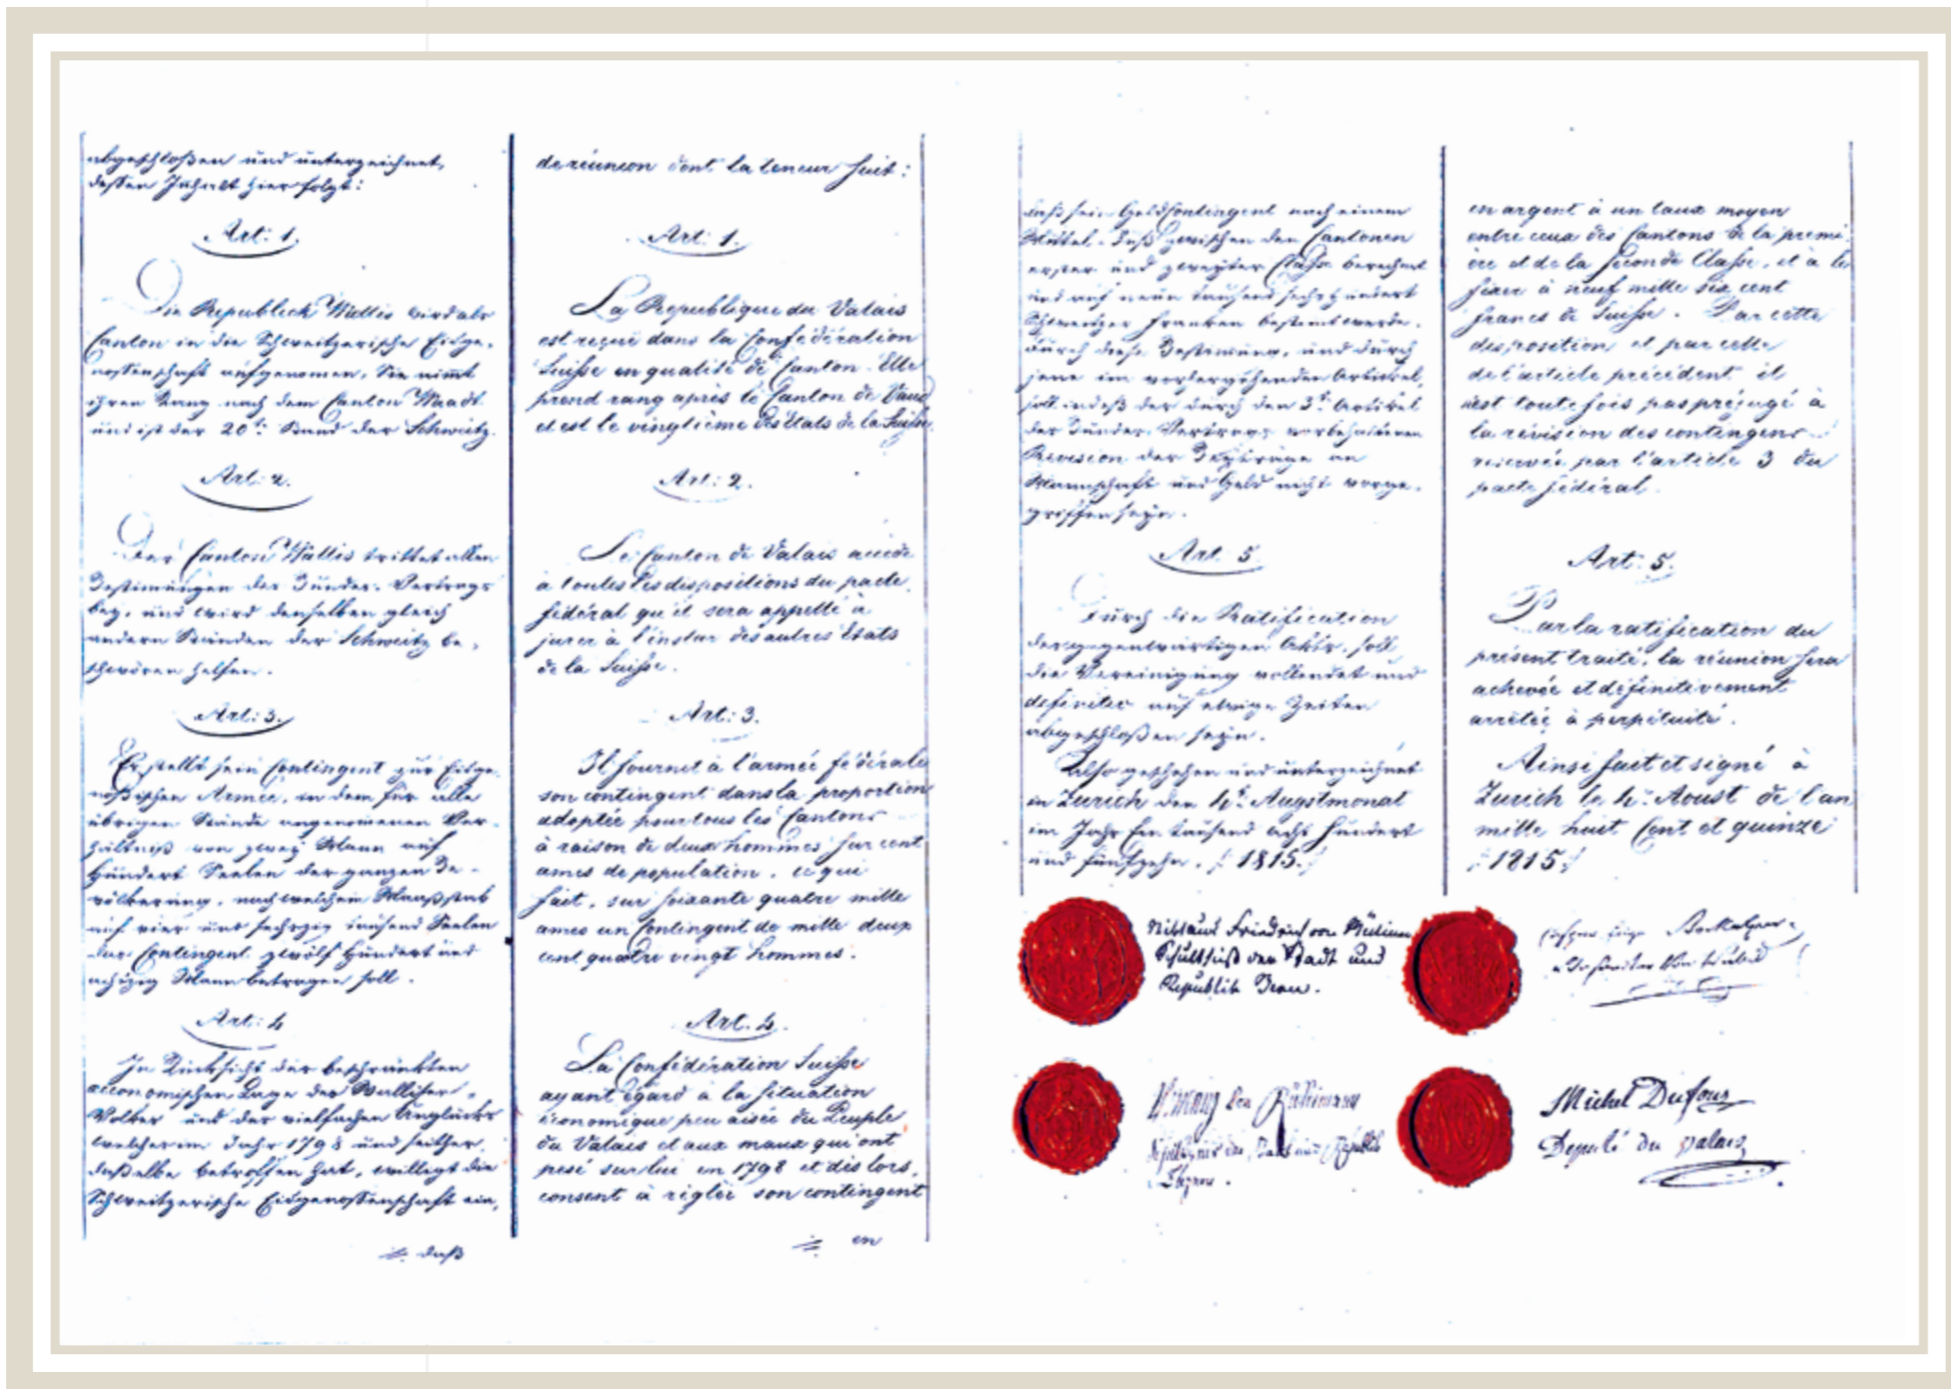 abgeschloßen und unterzeichnet,
deßen Inhalt hier folgt:
Art: 1.
Die Republick Wallis wird als
Canton in die Schweitzerische Eidge,
noßenschaft aufgenomen, Sie nimt
ihren Rang nach dem Canton Waadt
und ist der 20te Stand der Schweitz.
Art: 2.
Der Canton Wallis trittet allen
Bestimungen des Bundes-Vertrags
bey, und wird denselben gleich
andern Ständen der Schweitz be,
schwören helfen.
Art: 3.
Er stellt sein Contingent zur Eidge,
noßischen Armée, in dem für alle
übrigen Stände angenomenen Ver,
hältniß von zwey Mann auf
Hundert Seelen der ganzen Be,
völkerung, nach welchem Maaßstab
auf vier und sechzig tausend Seelen
das Contingent zwölf Hundert und
achtzig Mann betragen soll.
Art: 4
In Rücksicht der beschränkten
œconomischen Lage des Walliser,
Volkes und der vielfachen Unglücks
welches im Jahr 1798 und seither
daßelbe betroffen hat, willigt die
Schweitzerische Eidgenoßenschaft ein,
daß
de réunion dont la teneur suit:
Art: 1.
La Republique du Valais
est reçue dans la Confédération
Suisse en qualité de Canton. Elle
prend rang après le Canton de Vaud
et est le vingtième des Etats de la Suisse.
Art: 2.
Le Canton de Valais accède
à toutes les dispositions du pacte
fédéral qu'il sera appellé à
jurer à l'instar des autres Etats
de la Suisse.
Art: 3.
Il fournit à l'armée fédérale
son contingent dans la proportion
adoptée pour tous les Cantons
à raison de deux hommes sur cent
ames de population, ce qui
fait, sur soixante quatre mille
ames un Contingent de mille deux
cent quatre vingt hommes.
Art. 4.
La Confédération Suisse
ayant égard à la situation
économique peu aisée du Peuple
du Valais et aux maux qui ont
pesé sur lui en 1798 et dès lors,
consent à régler son contingent
en
daß sein Geld Contingent nach einem
Mittel-Fuß zwischen den Cantonen
erster und zweyter Claße berechnet
und auf neun tausend sechs hundert
Schweitzer Franken bestimt werde.
Durch diese Bestimung, und durch
jene im vorhergehenden Artickel,
soll indeß der durch den 3t. Artikel
des Bundes-Vertrags vorbehaltenen
Revision der Beyträge an
Mannschaft und Geld nicht vorge,
griffen seyn.
Art. 5
Durch die Ratification
des gegenwärtigen Akts, soll
die Vereinigung vollendet und
definitiv auf ewige Zeiten
abgeschloßen seyn.
Also geschehen und unterzeichnet
in Zurich den 4t. Augstmonat
im Jahr Ein tausend acht hundert
und fünfzehn. /: 1815. :/
en argent à un taux moyen
entre ceux des Cantons de la premi-
ère et de la seconde Classe, et à le
fixer à neuf mille six cent
francs de Suisse. Par cette
disposition et par celle
de l'article précédent il
n'est toutefois pas préjugé à
la révision des contingens
réservée par l'article 3 du
pacte fédéral.
Art: 5.
Par la ratification du
présent traité, la réunion sera
achevée et définitivement
arrêtée à perpétuité.
Ainsi fait et signé à
Zurich le 4t. Aoust de l'an
mille huit Cent et quinze
/: 1815 :/
Niklaus Friedrich von Mülinen
Schultheiß der Stadt und
Republik Bern.
von Rüttimann
Schultheis der Stadt und Republik
Luzern.
Michel Dufour
Deputé du Valais